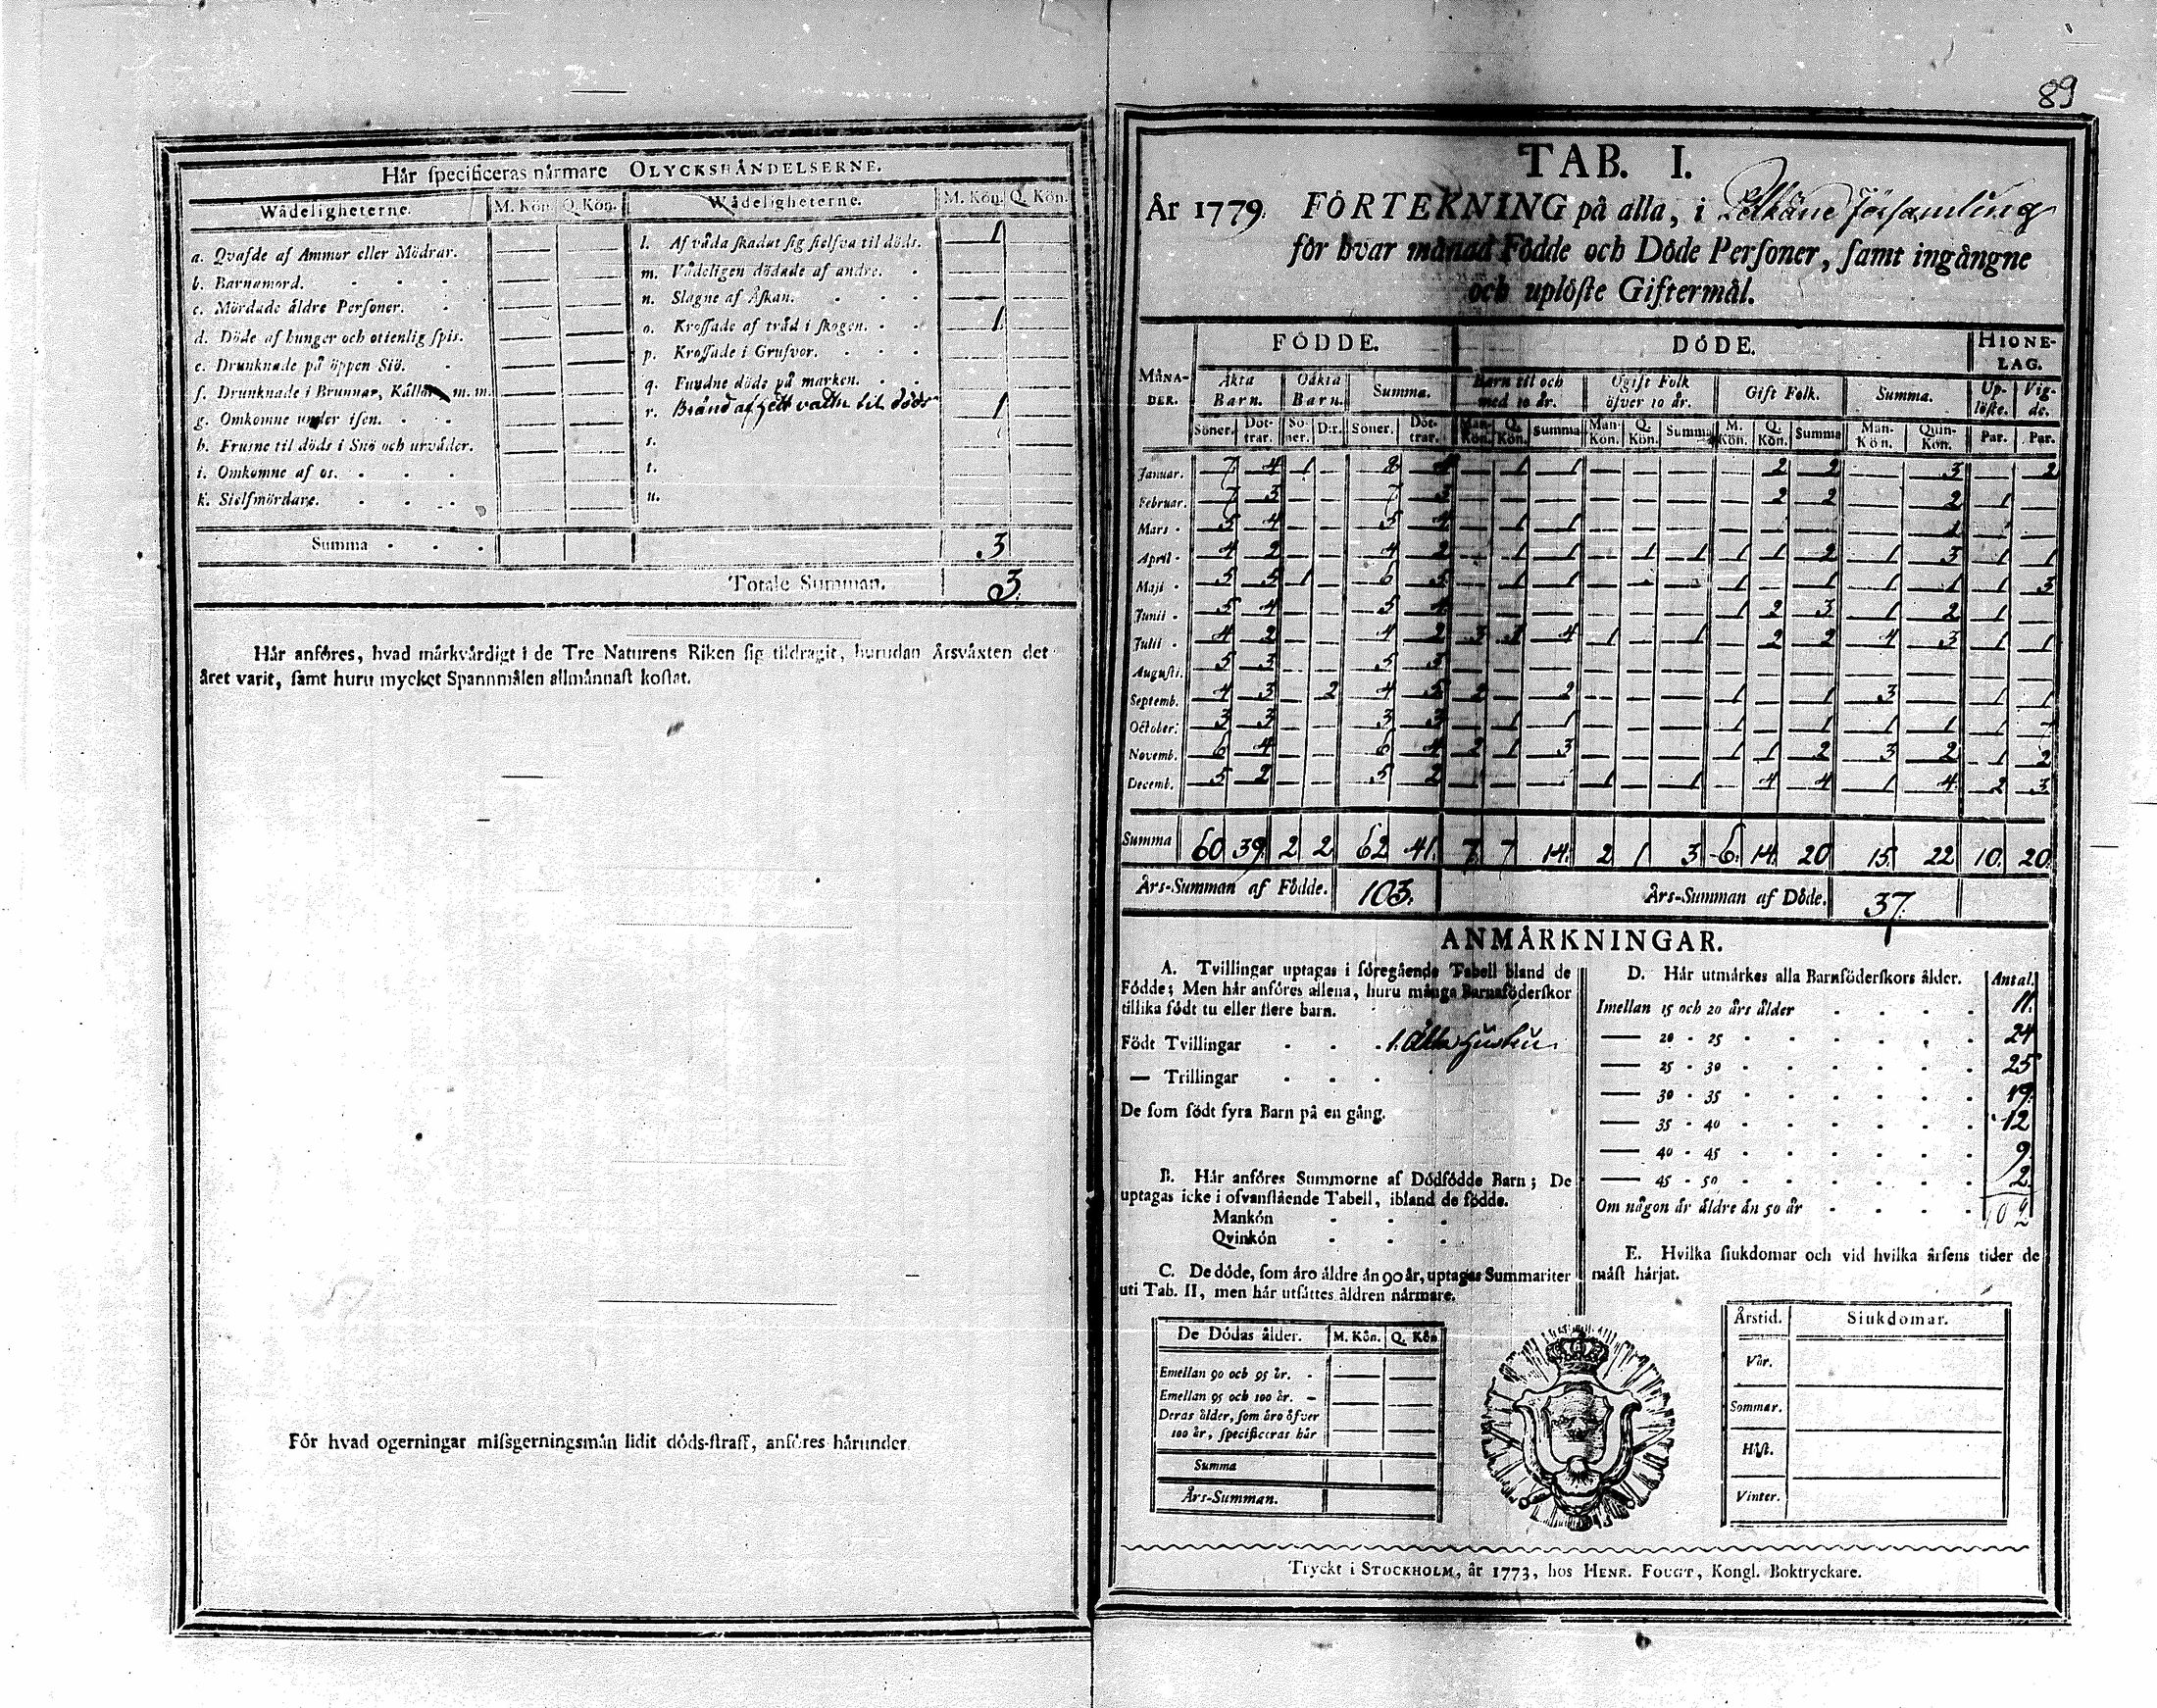 89
Här specificeras närmare OLYCKSHÄNDELSERNE.
Wådeligheterne. M. Kön. Q. Kön. Wådeligheterne. M. Kön. Q. Kön.
a. Qvafde af Ammor eller Mödrar. — —
b. Barnamord. — —
c. Mördade äldre Personer. — —
d. Döde af hunger och otienlig spis. — —
e. Drunknade på öppen Siö. — —
f. Drunknade i Brunnar, Källor m. m. — —
g. Omkomne under isen. — —
h. Frusne til döds i Snö och urväder. — —
i. Omkomne af os. — —
k. Sielfmördare. — —
l. Af våda skadat sig sielfva til döds. 1 —
m. Vådeligen dödade af andre. — —
n. Slagne af Åskan. — —
o. Krossade af träd i skogen. 1 —
p. Krossade i Grufvor. — —
q. Fundne döde på marken. — —
r. Bränd af hett vatn til döds 1 —
s.
t.
u.
Summa 3
Totale Summan. 3.
Här anföres, hvad märkvärdigt i de Tre Naturens Riken sig tildragit, hurudan Årsväxten det
året varit, samt huru mycket Spannmålen allmännast kostat.
För hvad ogerningar missgerningsmän lidit döds-straff, anföres härunder
TAB. I.
År 1779. FÖRTEKNING på alla, i Pelkäne Församling
för hvar månad Födde och Döde Personer, samt ingångne
och uplöste Giftermål.
FÖDDE. DÖDE. HIONE-LAG.
MÅNA-DER. Äkta Barn. Oäkta Barn. Summa. Barn til och med 10 år. Ogift Folk öfver 10 år. Gift Folk. Summa. Up-löste. Vig-de.
Söner. Döt-trar. Sö-ner. D:r. Söner. Döt-trar. Man-Kön. Q. Kön. Summa Man-Kön. Q. Kön. Summa M. Kön. Q. Kön. Summa Man-Kön. Quin-Kön. Par. Par.
Januar. 7 4 1 — 8 4 — 1 1 — — — — 2 2 — 3 — 2
Februar. 7 3 — — 7 3 — — — — — — — 2 2 — 2 1 —
Mars 5 4 — — 5 4 — 1 1 — — — — — — — 1 1 —
April 4 2 — — 4 2 — 1 1 — 1 1 1 1 2 1 3 1 1
Maji 5 5 1 — 6 5 — 1 1 — — — 1 — 1 1 1 1 3
Junii 5 4 — — 5 4 — — — — — — 1 2 3 1 2 1 —
Julii 4 2 — — 4 2 3 1 4 1 — 1 — 2 2 4 3 1 1
Augusti. 5 3 — — 5 3 — — — — — — — — — — — — —
Septemb. 4 3 — 2 4 5 2 — 2 — — — 1 — 1 3 — 1 1
October. 3 3 — — 3 3 — 1 1 — — — 1 — 1 1 1 1 7
Novemb. 6 4 — — 6 4 2 1 3 — — — 1 1 2 3 2 1 2
Decemb. 5 2 — — 5 2 — — — 1 — 1 — 4 4 1 4 2 3
Summa 60 39. 2 2 62 41. 7. 7 14. 2 1 3 6. 14. 20 15. 22 10. 20.
Års-Summan af Födde. 103. Års-Summan af Döde. 37.
ANMÄRKNINGAR.
A. Tvillingar uptagas i föregående Tabell bland de
Födde; Men här anföres allena, huru många Barnaföderskor
tillika födt tu eller flere barn.
Födt Tvillingar 1.
— Trillingar
De som födt fyra Barn på en gång.
B. Här anföres Summorne af Dödfödde Barn; De
uptagas icke i ofvanstående Tabell, ibland de födde.
Mankön
Qvinkön
C. De döde, som äro äldre än 90 år, uptagas Summariter
uti Tab. II, men här utsättes åldren närmare.
De Dödas ålder. M. Kön. Q. Kön
Emellan 90 och 95 år. — —
Emellan 95 och 100 år. — —
Deras ålder, som äro öfver
100 år, specificeras här — —
Summa
Års-Summan.
D. Här utmärkes alla Barnföderskors ålder. Antal.
Imellan 15 och 20 års ålder 11.
— 20 - 25 24
— 25 - 30 25
— 30 - 35 19.
— 35 - 40 12
— 40 - 45 9.
— 45 - 50 2.
Om någon är äldre än 50 år 102
E. Hvilka siukdomar och vid hvilka årsens tider de
mäst härjat.
Årstid. Siukdomar.
Vår.
Sommar.
Höst.
Vinter.
Tryckt i STOCKHOLM, år 1773, hos HENR. FOUGT, Kongl. Boktryckare.